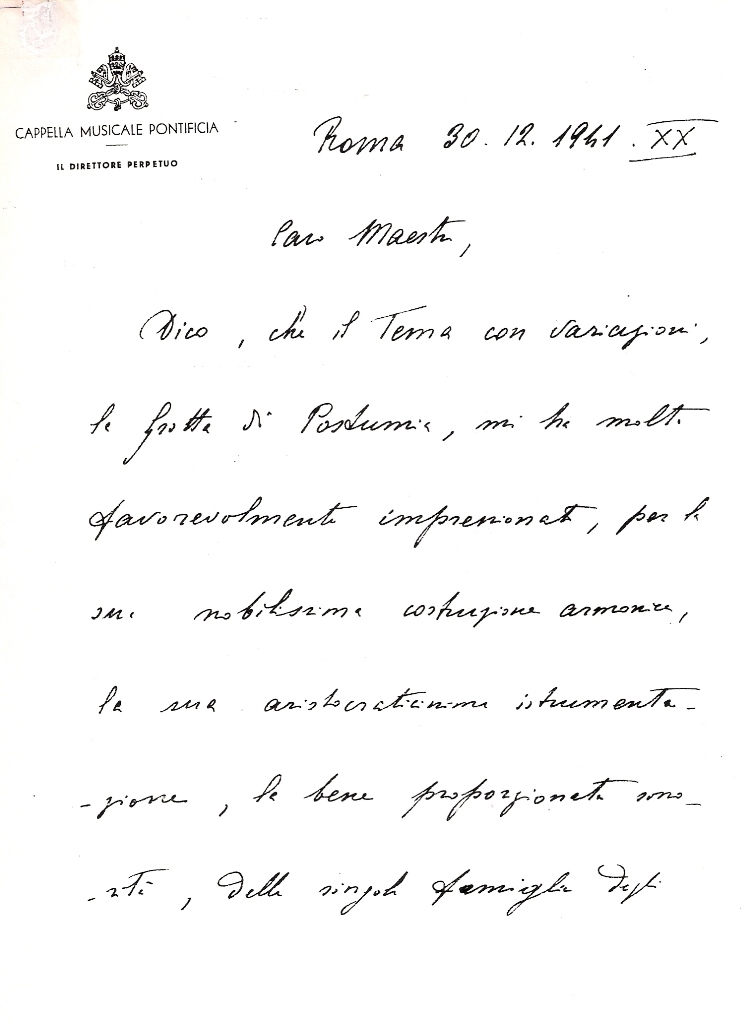 CAPPELLA MUSICALE PONTIFICIA
IL DIRETTORE PERPETUO
Roma 30.12.1941.XX
Caro Maestro,
Dico, chè il Tema con variazioni,
le Grotte di Postumia, mi ha molto
favorevolmente impressionato, per la
sua nobilissima costruzione armonica,
la sua aristocraticissima istrumenta-
-zione, la bene proporzionata sono-
-rità, delle singole famiglie degli